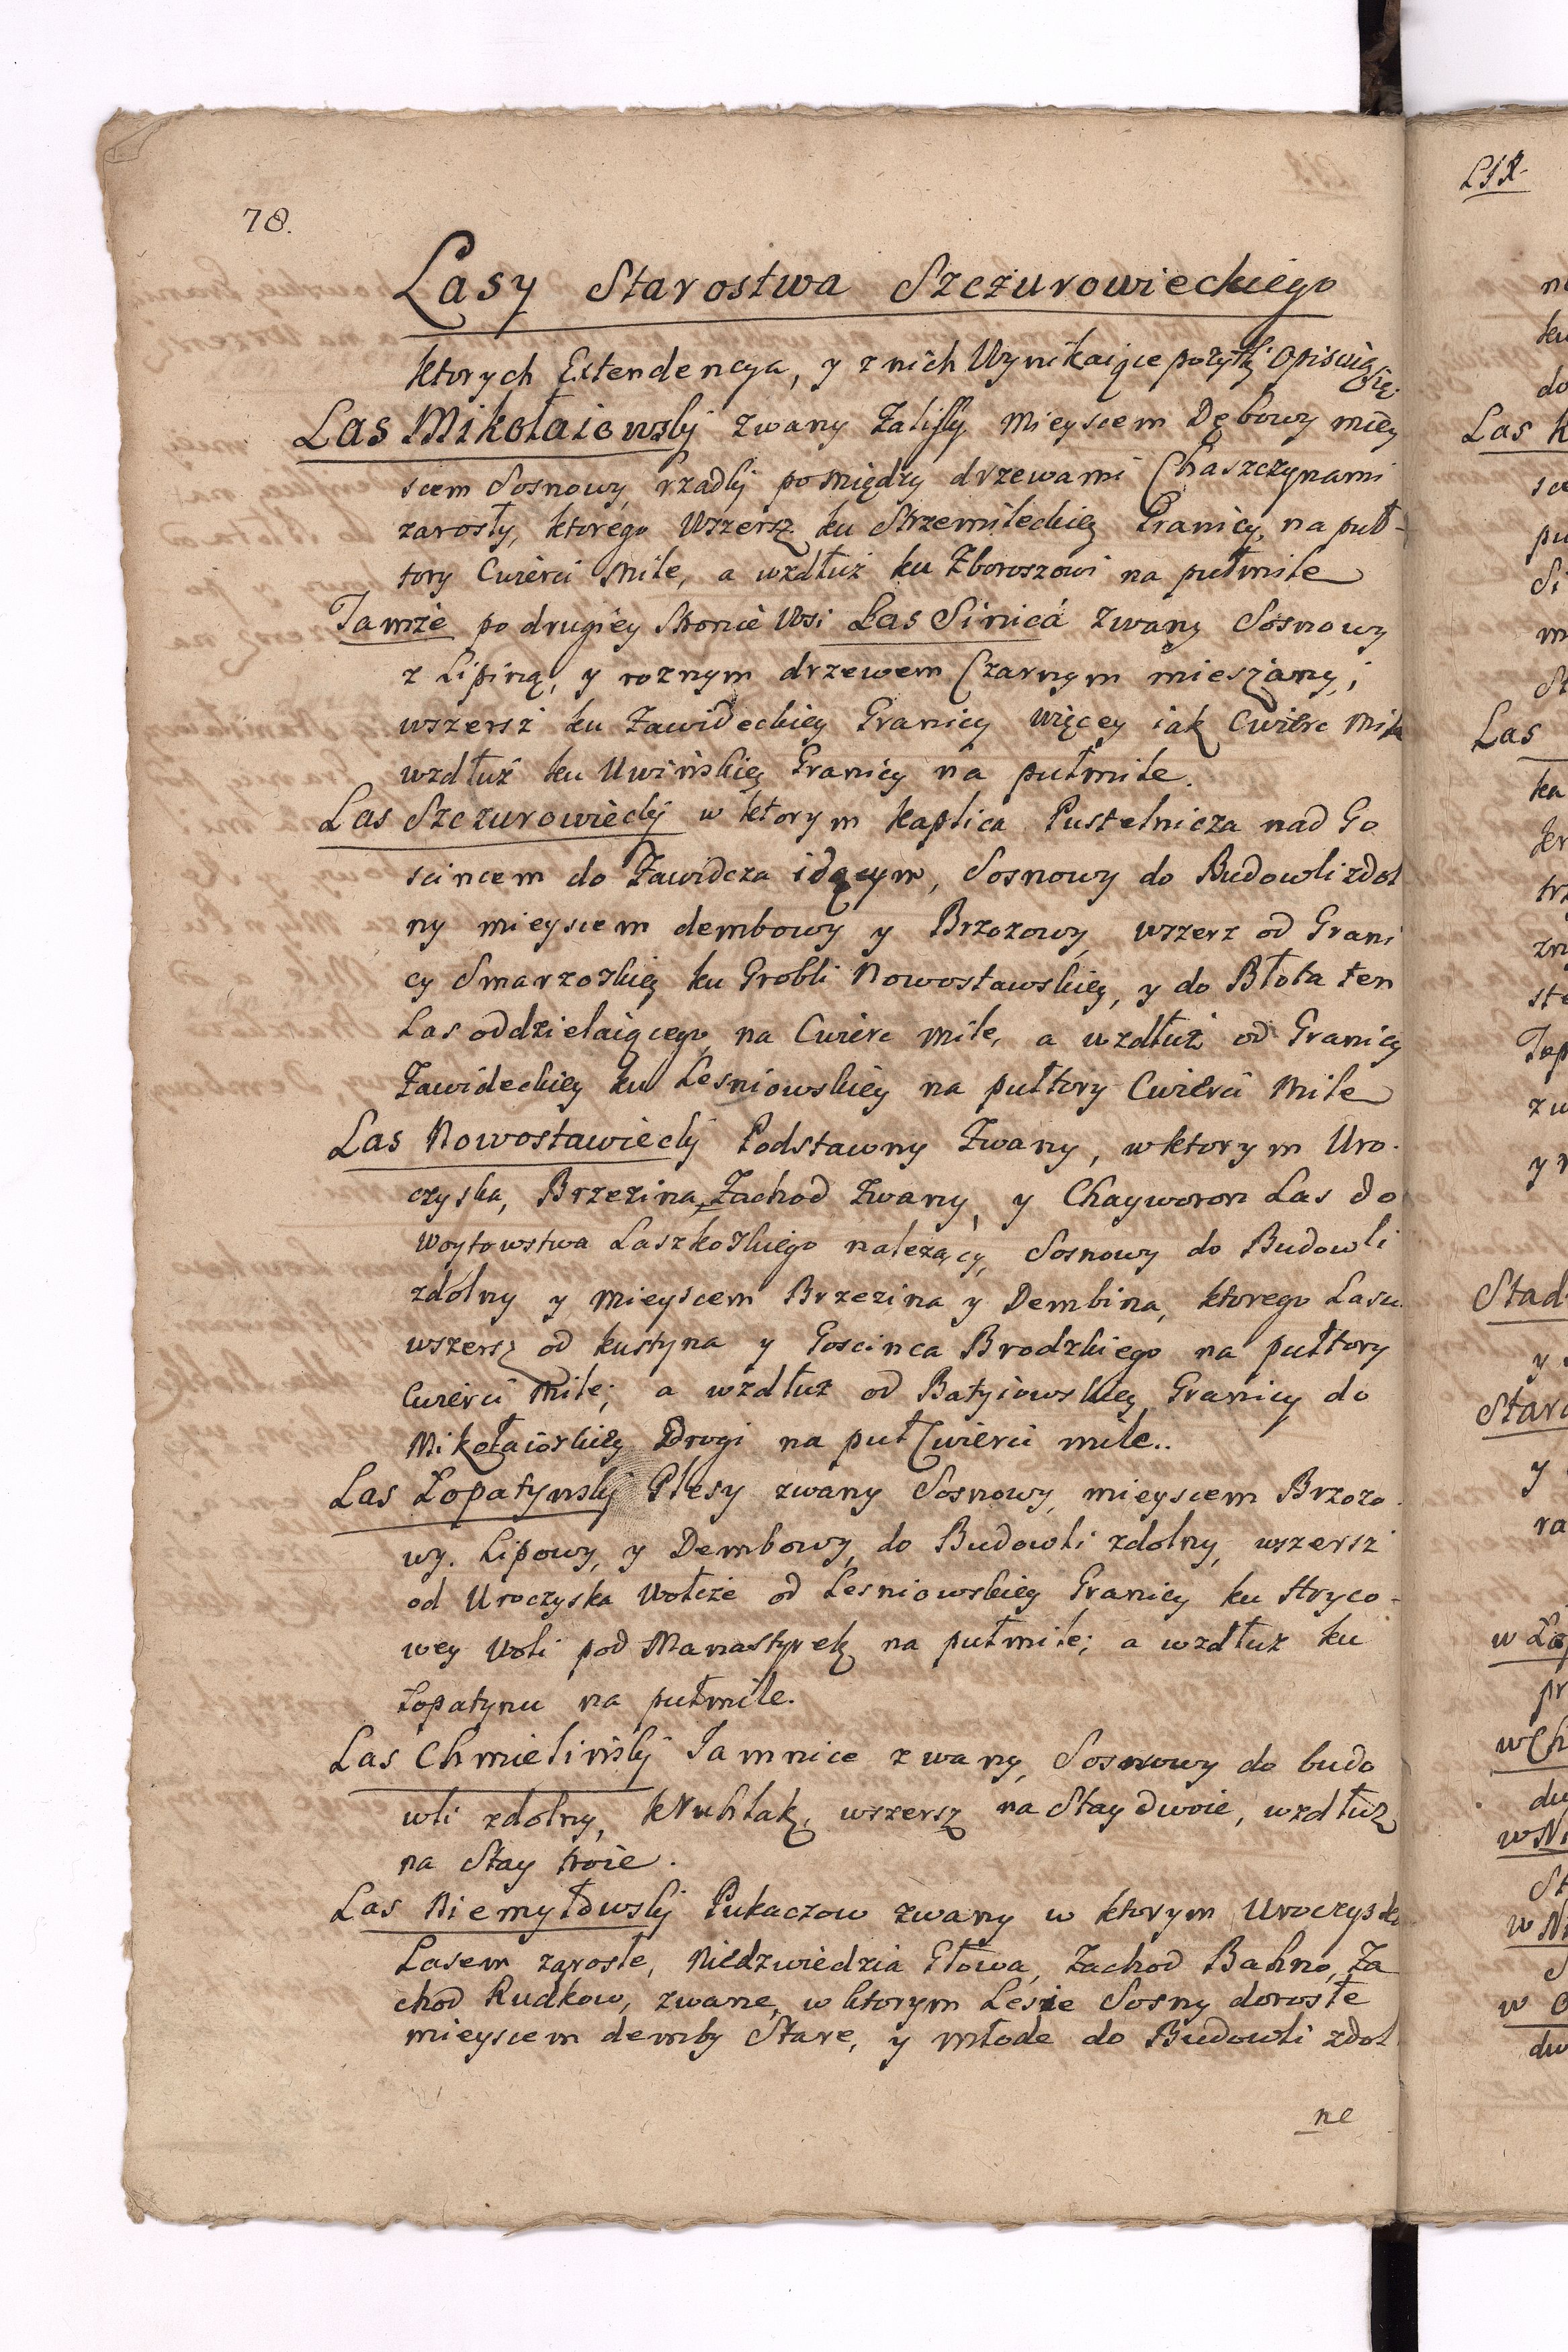 78.
Lasy Starostwa Szczurowieckiego
ktorych Extendencya, y z nich Wynikaiące pożytki opisuią się.
Las Mikołaiowski zwany Zalissy Mieyscem Dębowy miey
scem Sosnowy, rzadki pomiędzy drzewami Chaszczynami
zarosły, ktorego Wszersz ku Strzemileckiey Granicy, na puł-
tory Cwierci Mile, a wzdłuż ku Zboroszowi na pułmile
Tamże po drugiey Stronie Wsi Las Sinica zwany Sosnowy
z Lipiną, y roznym drzewem Czarnym mieszany,
wszersż ku Zawideckiey Granicy więcey iak Cwierc Mile
wzdłuż ku Uwińskiey Granicy na pułmile.
Las Szczurowiecki w ktorym Kaplica Pustelnicza nad Go
scincem do Zawidcza idącym, Sosnowy do Budowli zdol
ny mieyscem dembowy y Brzozowy, wszerz od Grani
cy Smarzoskiey ku Grobli Nowostawskiey, y do Błota ten
Las oddzielaiącego, na Cwierc mile, a wzdłuż od Granicy
Zawideckiey ku Lesniowskiey na pułtory Cwierci Mile
Las Nowostawiecki Podstawny Zwany, w ktorym Uro-
czyska, Brzezina, Zachod Zwany, y Chayworon Las do
Woytowstwa Laszkoskiego należący, Sosnowy do Budowli
zdolny y Mieyscem Brzezina y Dembina, ktorego Lasu
wszersz od Kustyna y Goscinca Brodzkiego na pułtory
Cwierci Mile; a wzdłuż od Batyiowskiey Granicy do
Mikołaioskiey Drogi na puł Cwierci mile..
Las Łopatynski Plesy zwany Sosnowy, mieyscem Brzozo
wy. Lipowy, y Dembowy, do Budowli zdolny, wszersz
od Uroczyska Wolcze od Lesniowskiey Granicy ku Stryco-
wey Woli pod Manastyrek na pułmile; a wzdłuż ku
Łopatynu na pułmile.
Las Chmieliński Jamnice zwany, Sosnowy do budo
wli zdolny, Kruhlak, wszersz na Stay dwoie, wzdłuż
na Stay troie.
Las Niemyłowski Pukaczow zwany w ktorym Uroczyska
Lasem zarosłe, Niedzwiedzia Głowa, Zachod Bahno, Za
chod Rudkow, zwane, w ktorym Lesie Sosny dorosłe
mieyscem demby Stare, y młode do Budowli zdol
ne
Las
Stad